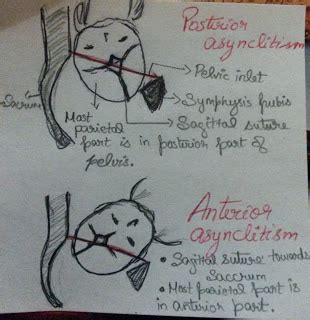 Posterior
asynclitism
Pelvic inlet
Sacrum
Symphysis pubis
Sagittal suture
Most
parietal
part is in posterior part of
pelvis.
Anterior
asynclitism
• Sagittal suture towards
Saccrum
• Most parietal part is
in anterior part.